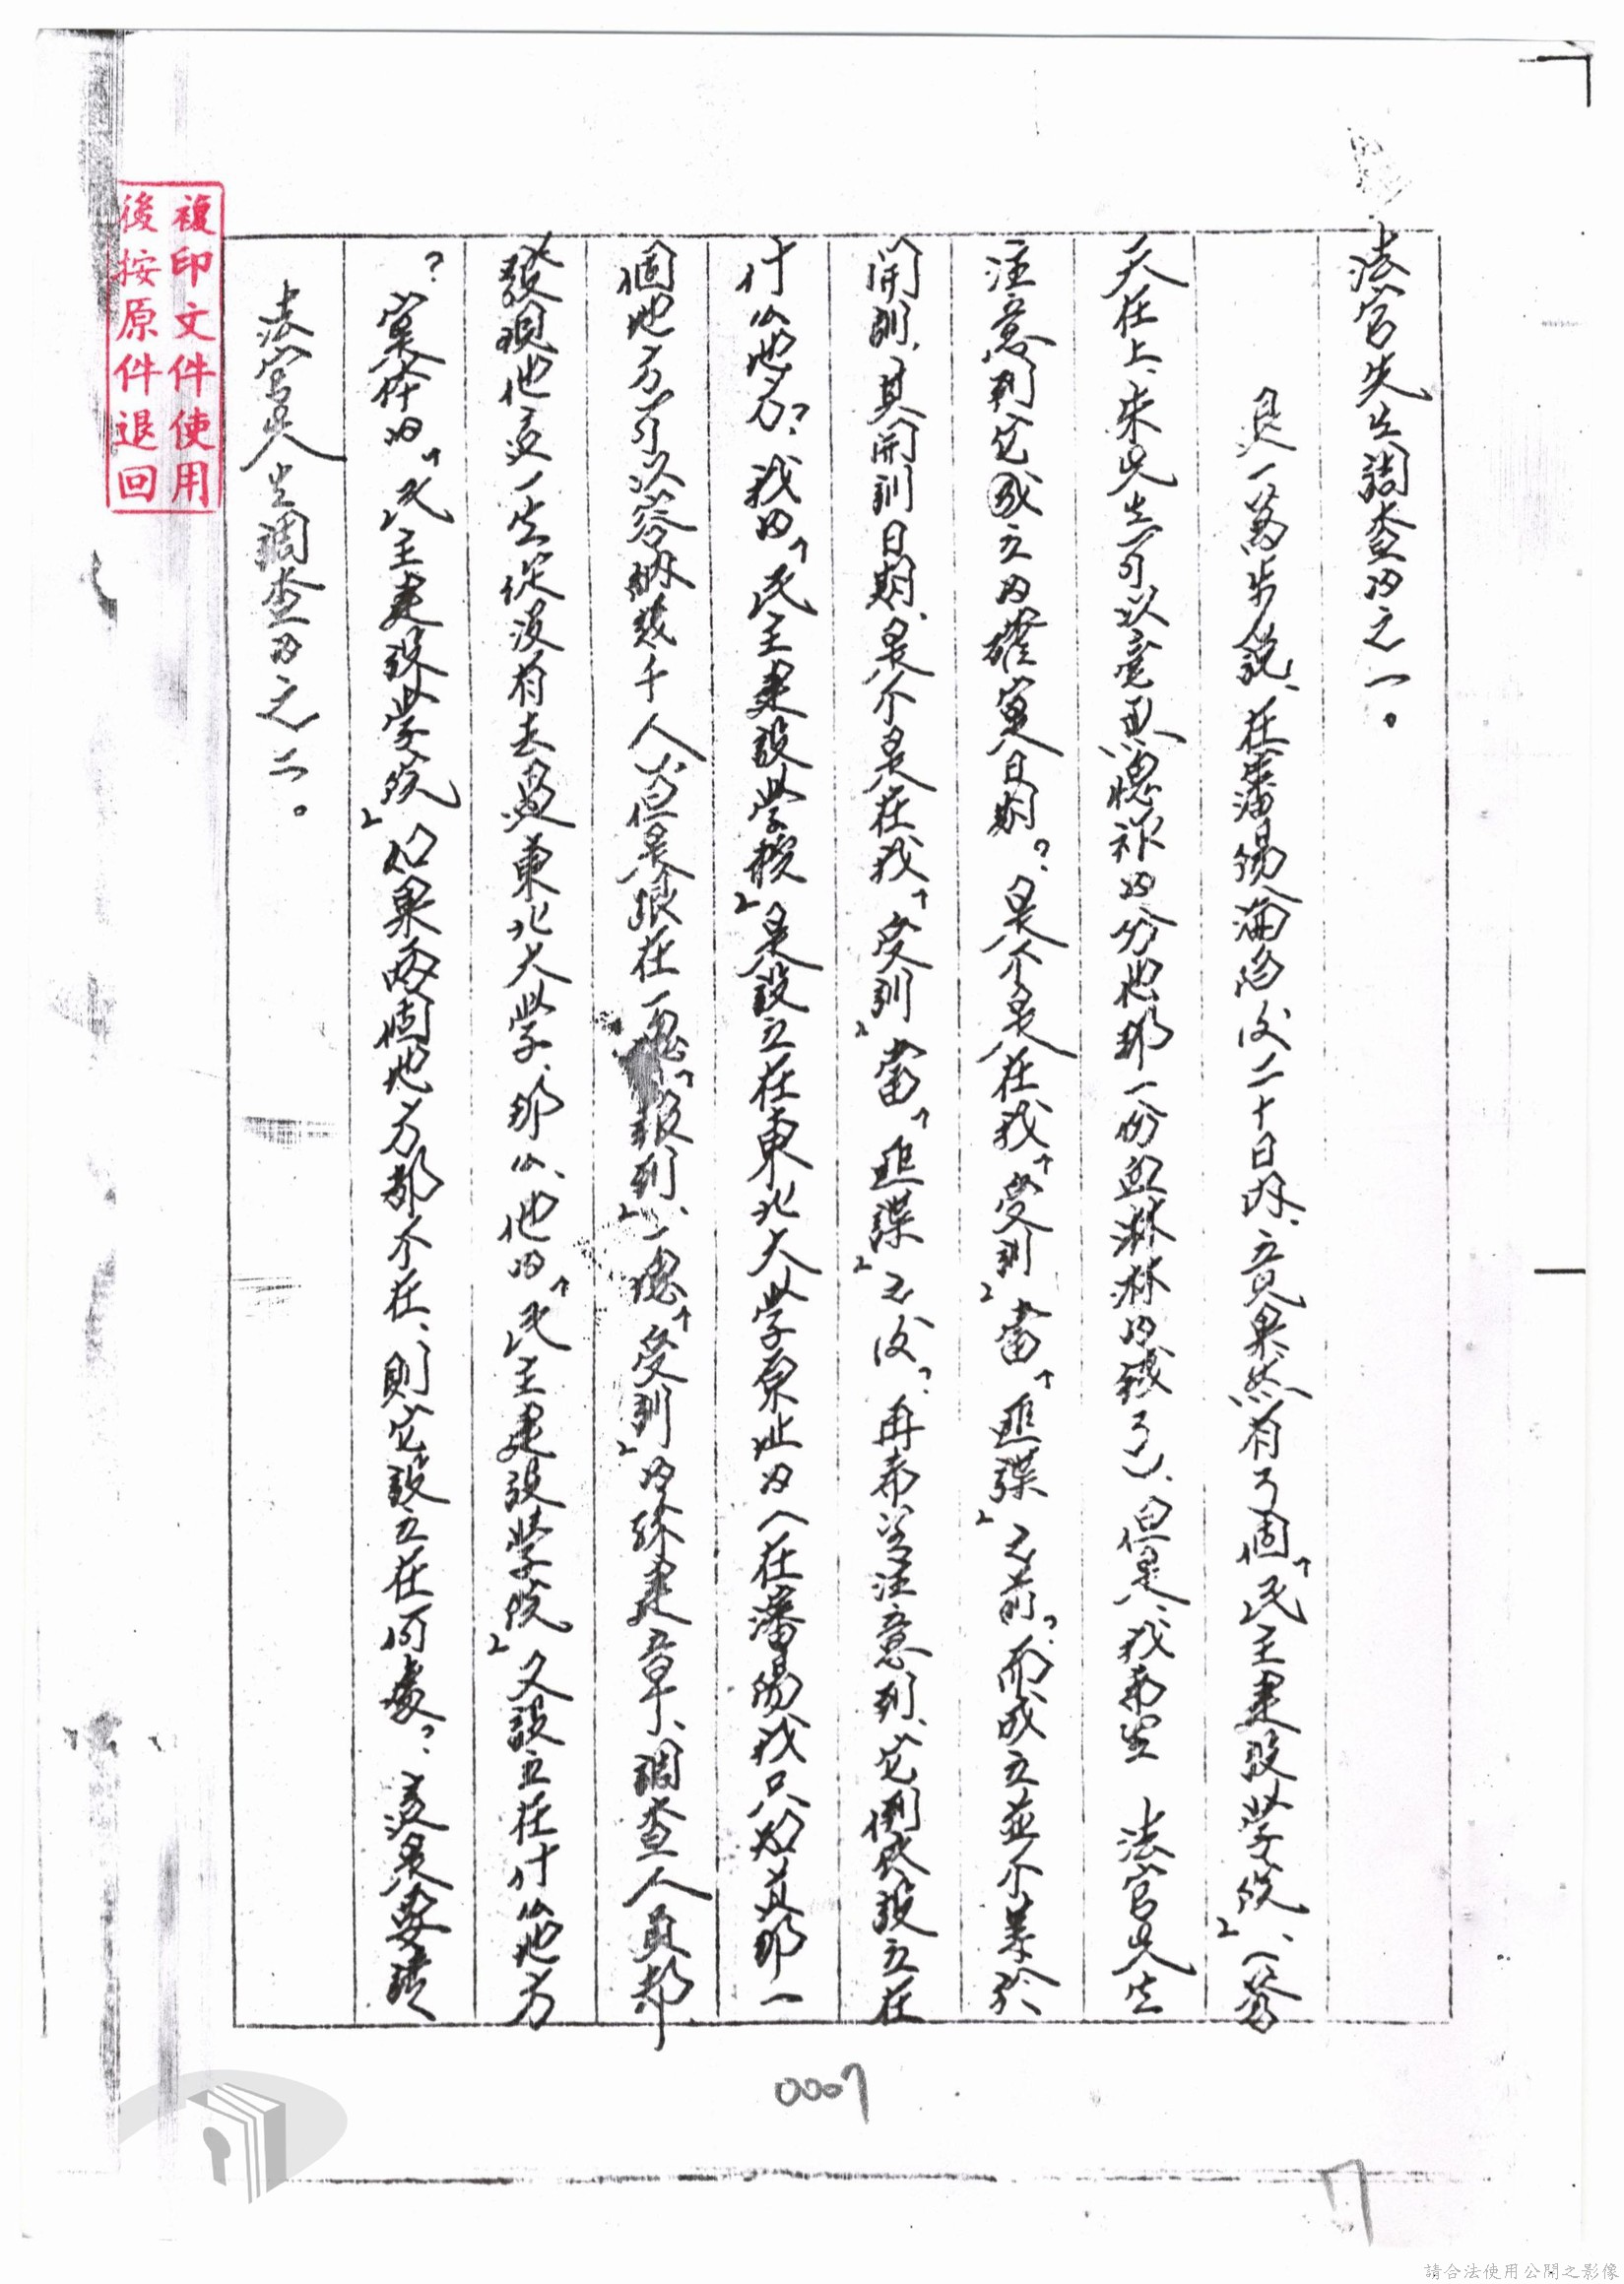 法官先生調查的之一。
退一萬步說、在瀋陽淪陷後二十日內、竟果然有了個「民主建設學院」、(蒼
天在上、朱先生可以毫無愧祚的分他那一份血淋淋的錢了)、但是、我希望 法官先生
注意到它成立的確實日期?是不是在我「受訓」當「匪諜」之前?而成立並不等於
開訓、其開訓日期、是不是在我「受訓」當「匪諜」之後?再希望注意到、它倒底設立在
什么地方?我的「民主建設學校」是設立在東北大學原址的(在瀋陽我只知道那一
個地方可以容納幾千人)但是跟在一塊「報到」、一塊「受訓」的孫建章、調查人員都
發現他這一生從沒有去過東北大學、那么、他的「民主建設學院」又設立在什么地方
?黨伴的「民主建設學院」如果兩個地方都不在、則它設立在何處?這是要請
法官先生調查的之二。
0007
7
複印文件使用
後按原件退回
請合法使用公開之影像